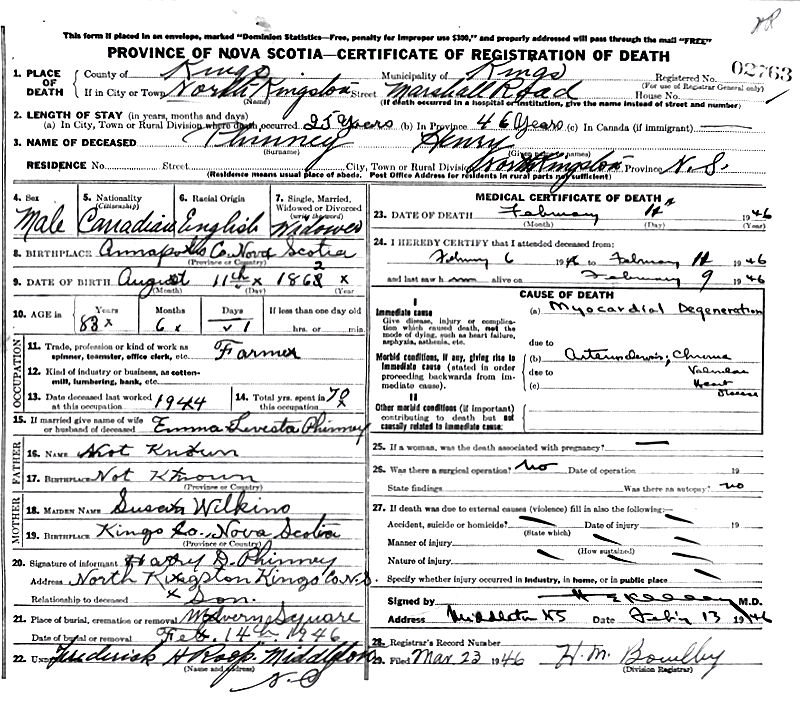 This form if placed in an envelope, marked "Dominion Statistics—Free, penalty for improper use $300," and properly addressed will pass through the mail "FREE"
PROVINCE OF NOVA SCOTIA—CERTIFICATE OF REGISTRATION OF DEATH
1. PLACE OF DEATH County of Kings Municipality of Kings Registered No. 02763
(For use of Registrar General only)
If in City or Town North Kingston Street Marshall Road House No.
(Name) (If death occurred in a hospital or institution, give the name instead of street and number)
2. LENGTH OF STAY (in years, months and days)
(a) In City, Town or Rural Division where death occurred 25 Years (b) In Province 46 Years (c) In Canada (if immigrant) —
3. NAME OF DECEASED Phinney Henry
(Surname) (Given names)
RESIDENCE No. Street City, Town or Rural Division North Kingston Province N.S.
(Residence means usual place of abode. Post Office Address for residents in rural parts not sufficient)
4. Sex Male
5. Nationality (Citizenship) Canadian
6. Racial Origin English
7. Single, Married, Widowed or Divorced (write the word) Widowed
8. BIRTHPLACE Annapolis Co. Nova Scotia
(Province or Country)
9. DATE OF BIRTH August 11th x 1862 x
(Month) (Day) (Year
10. AGE in Years 83 x Months 6 x Days 1 If less than one day old
hrs. or min.
OCCUPATION
11. Trade, profession or kind of work as spinner, teamster, office clerk, etc. Farmer
12. Kind of industry or business, as cotton-mill, lumbering, bank, etc.
13. Date deceased last worked at this occupation 1944 14. Total yrs. spent in this occupation 70 x
15. If married give name of wife or husband of deceased Emma Phinney
FATHER
16. NAME Not Known
17. BIRTHPLACE Not Known
(Province or Country)
MOTHER
18. MAIDEN NAME Susan Wilkins
19. BIRTHPLACE Kings Co., Nova Scotia
(Province or Country)
20. Signature of informant Harry D. Phinney
Address North Kingston Kings Co. N.S.
Relationship to deceased x Son.
21. Place of burial, cremation or removal Square
Date of burial or removal Feb. 14th 1946
22. Frederick H Roop Middleton
(Name and address)
N.S
MEDICAL CERTIFICATE OF DEATH
23. DATE OF DEATH February 1946
(Month) (Day) (Year)
24. I HEREBY CERTIFY that I attended deceased from:
February 6 1946 to February 1946
and last saw h im alive on February 9 1946
CAUSE OF DEATH
I
Immediate cause (a) Myocardial Degeneration
Give disease, injury or complication which caused death, not the mode of dying, such as heart failure, asphyxia, asthenia, etc.
due to
Morbid conditions, if any, giving rise to immediate cause (stated in order proceeding backwards from immediate cause).
(b) Chronic
due to Valvular
(c) Heart
Disease
II
Other morbid conditions (if important) contributing to death but not causally related to immediate cause.
25. If a woman, was the death associated with pregnancy? —
26. Was there a surgical operation? no Date of operation 19
State findings Was there an autopsy? no
27. If death was due to external causes (violence) fill in also the following:—
Accident, suicide or homicide? Date of injury 19
(State which)
Manner of injury
(How sustained)
Nature of injury
Specify whether injury occurred in industry, in home, or in public place
Signed by M.D.
Address Middleton NS Date Feb'y 13 1946
28. Registrar's Record Number
29. Filed Mar 23 1946 H. M. Bowlby
(Division Registrar)